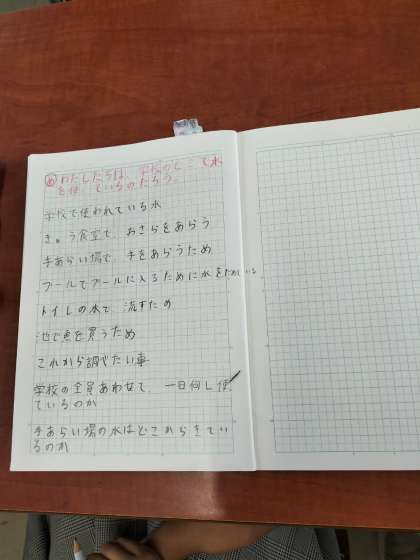 めわたしたちは、学校のどこで水
を使っているのだろう。
学校で使われている水
きゅう食室で、おさらをあらう
手あらい場で、手をあらうため
プールでプールに入るために水をためている
トイレの水で、流すため
池で魚を買うため
これから調べたい事
学校の全員あわせて、一日何L使っ
ているのか
手あらい場の水はどこからきてい
るのか